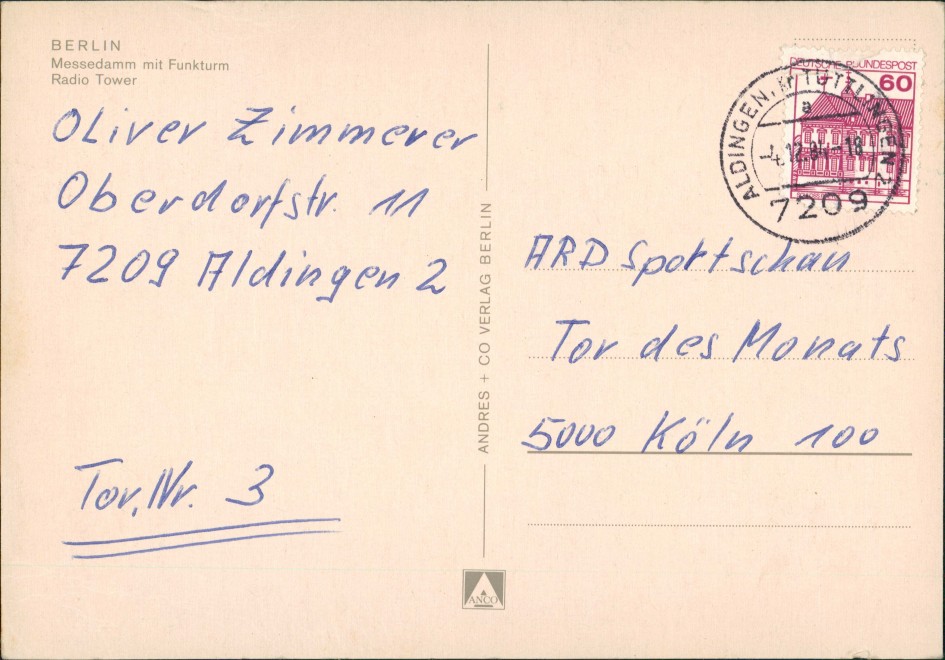 BERLIN
Messedamm mit Funkturm
Radio Tower
Oliver Zimmerer
Oberdorfstr. 11
7209 Aldingen 2
Tor, Nr. 3
ANDRES + CO VERLAG BERLIN
ANCO
DEUTSCHE BUNDESPOST
60
ALDINGEN, Kr TUTTLINGEN 2
a
-4.12.84-18
7209
ARD Sportschau
Tor des Monats
5000 Köln 100